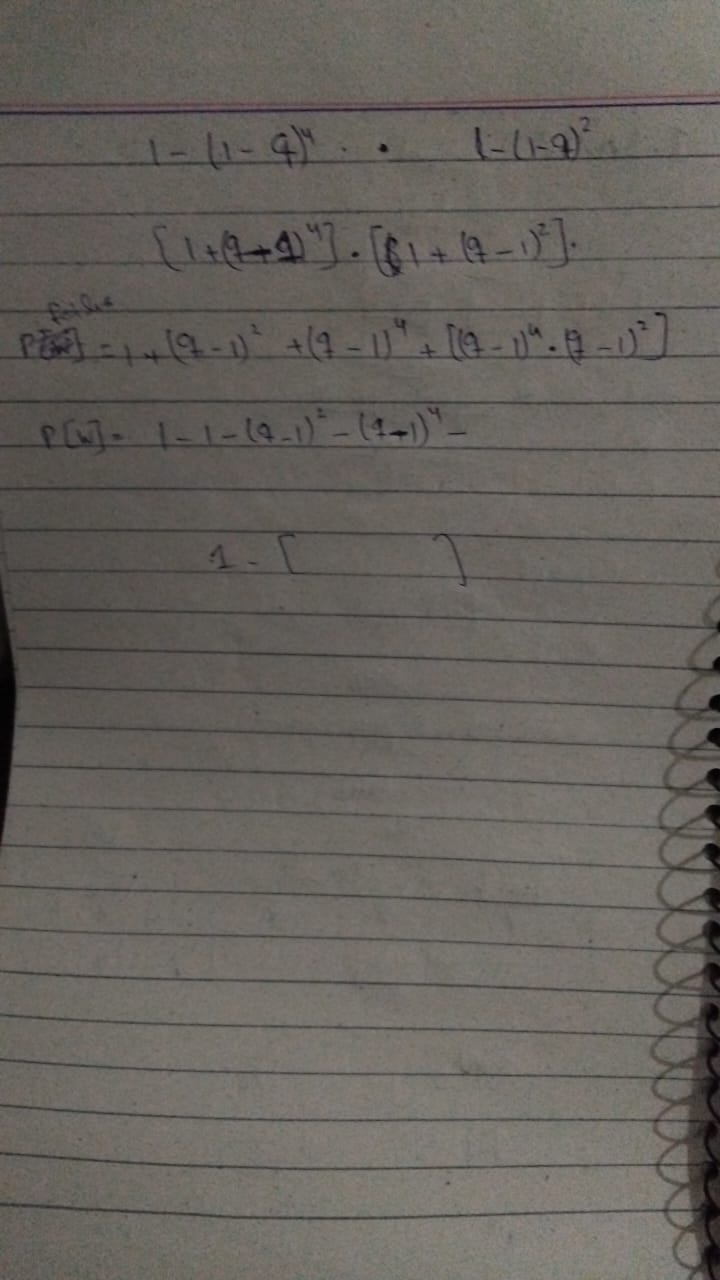 1 - (1 - q)⁴ · 1 - (1-q)²
[1 + (q - 1)⁴] · [1 + (q - 1)²].
failure
P[] = 1 + (q - 1)² + (q - 1)⁴ + [(q - 1)⁴ · (q - 1)²]
P[W] = 1 - 1 - (q - 1)² - (q - 1)⁴ -
1 - [ ]